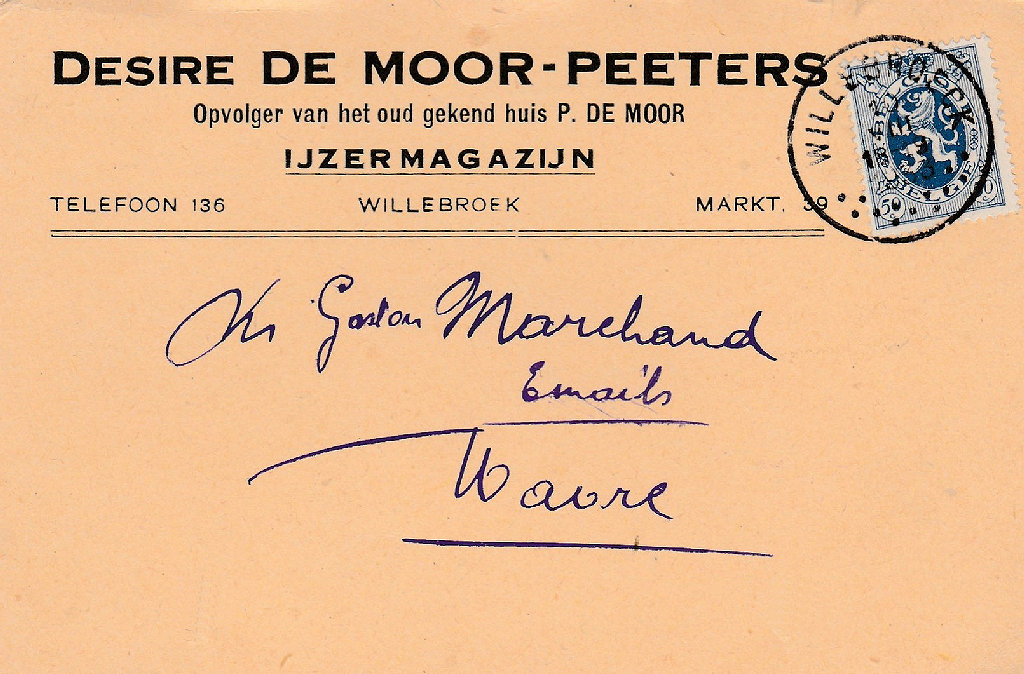 DESIRE DE MOOR-PEETERS
Opvolger van het oud gekend huis P. DE MOOR
IJZERMAGAZIJN
TELEFOON 136 WILLEBROEK MARKT, 39
WILLEBROECK
BELGIQUE
BELGIE
50
Gaston Marchand
Emails
Wavre